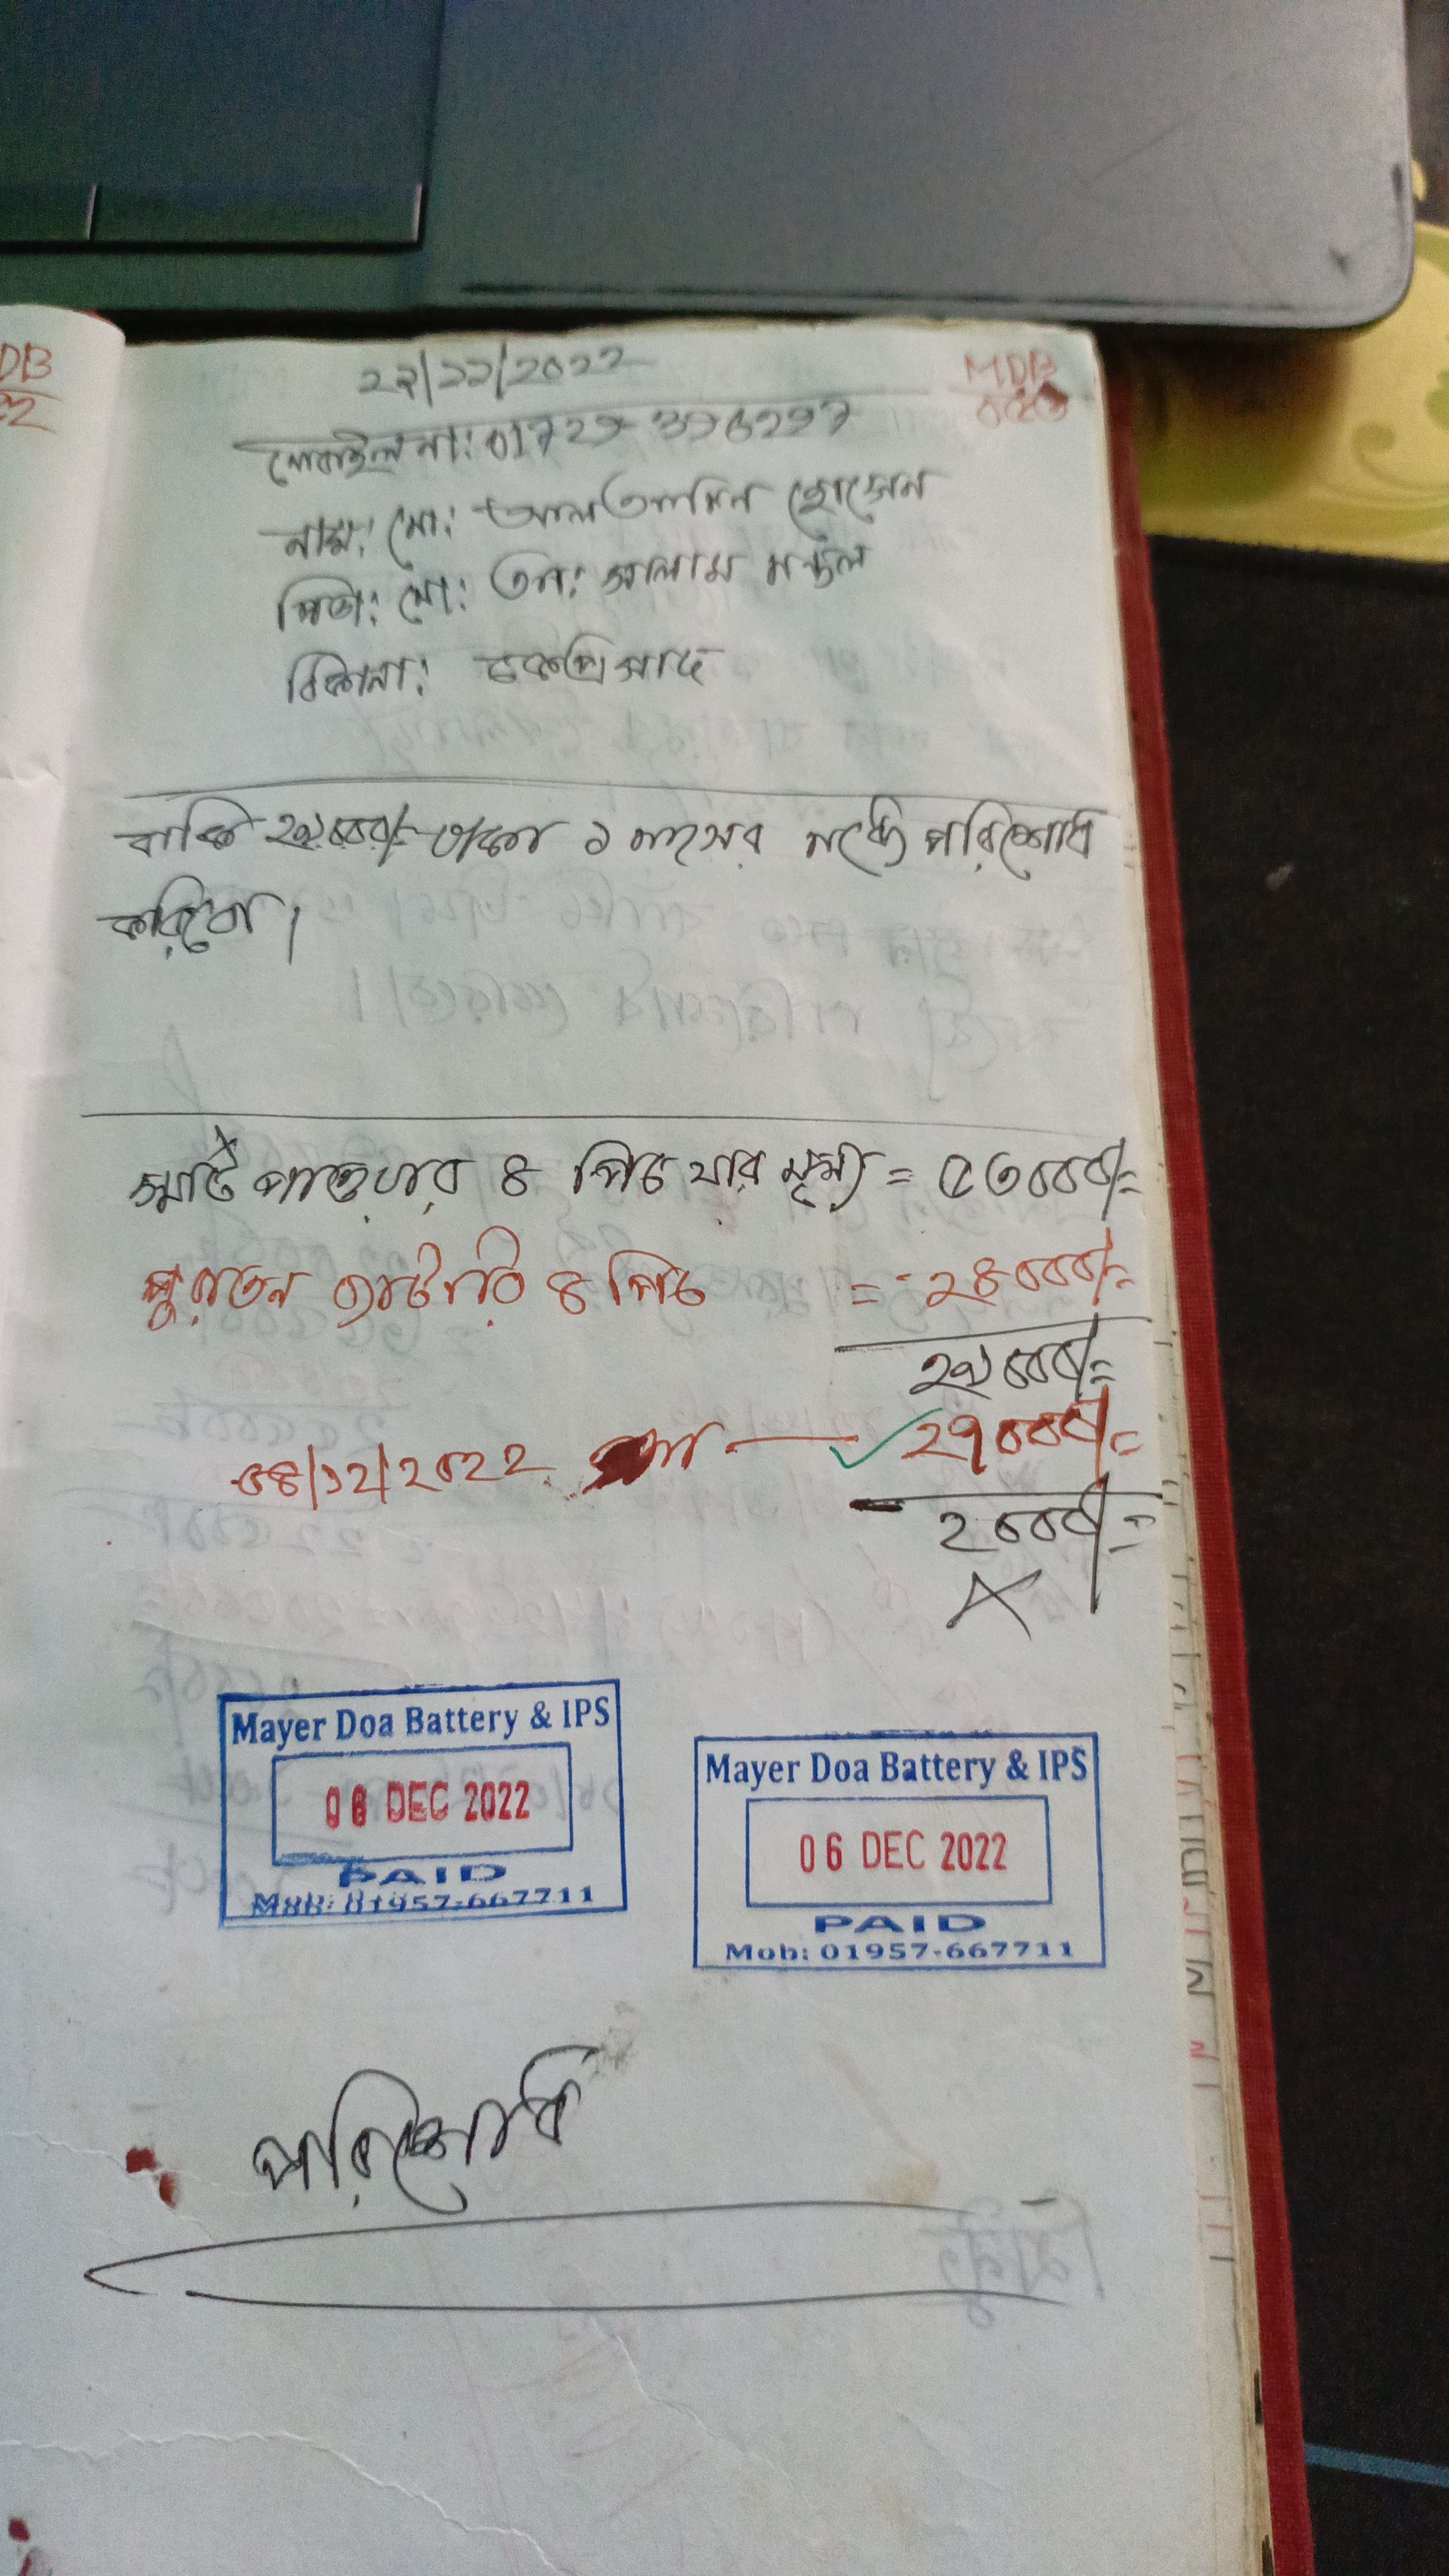 DB
MDB
২২/১১/২০২২
মোবাইল নং: 01729-376297
নাম: মো: আলআমিন হোসেন
পিতা: মো: আলাম মন্ডল
ঠিকানা: চকপ্রিসাদ
বাকি ২৯০০০/= টাকা ১ মাসের মধ্যে পরিশোধ
করিবো।
স্মার্ট পাওয়ার ৪ পিচ যার মূল্য = ৫৩০০০/=
পুরাতন ব্যাটারি ৪ পিচ = -২৪০০০/=
২৯০০০/=
০৪/১২/২০২২ জমা — ২৭০০০/=
২০০০/=
Mayer Doa Battery & IPS
06 DEC 2022
PAID
Mob: 01957-667711
Mayer Doa Battery & IPS
06 DEC 2022
PAID
Mob: 01957-667711
পরিশোধ